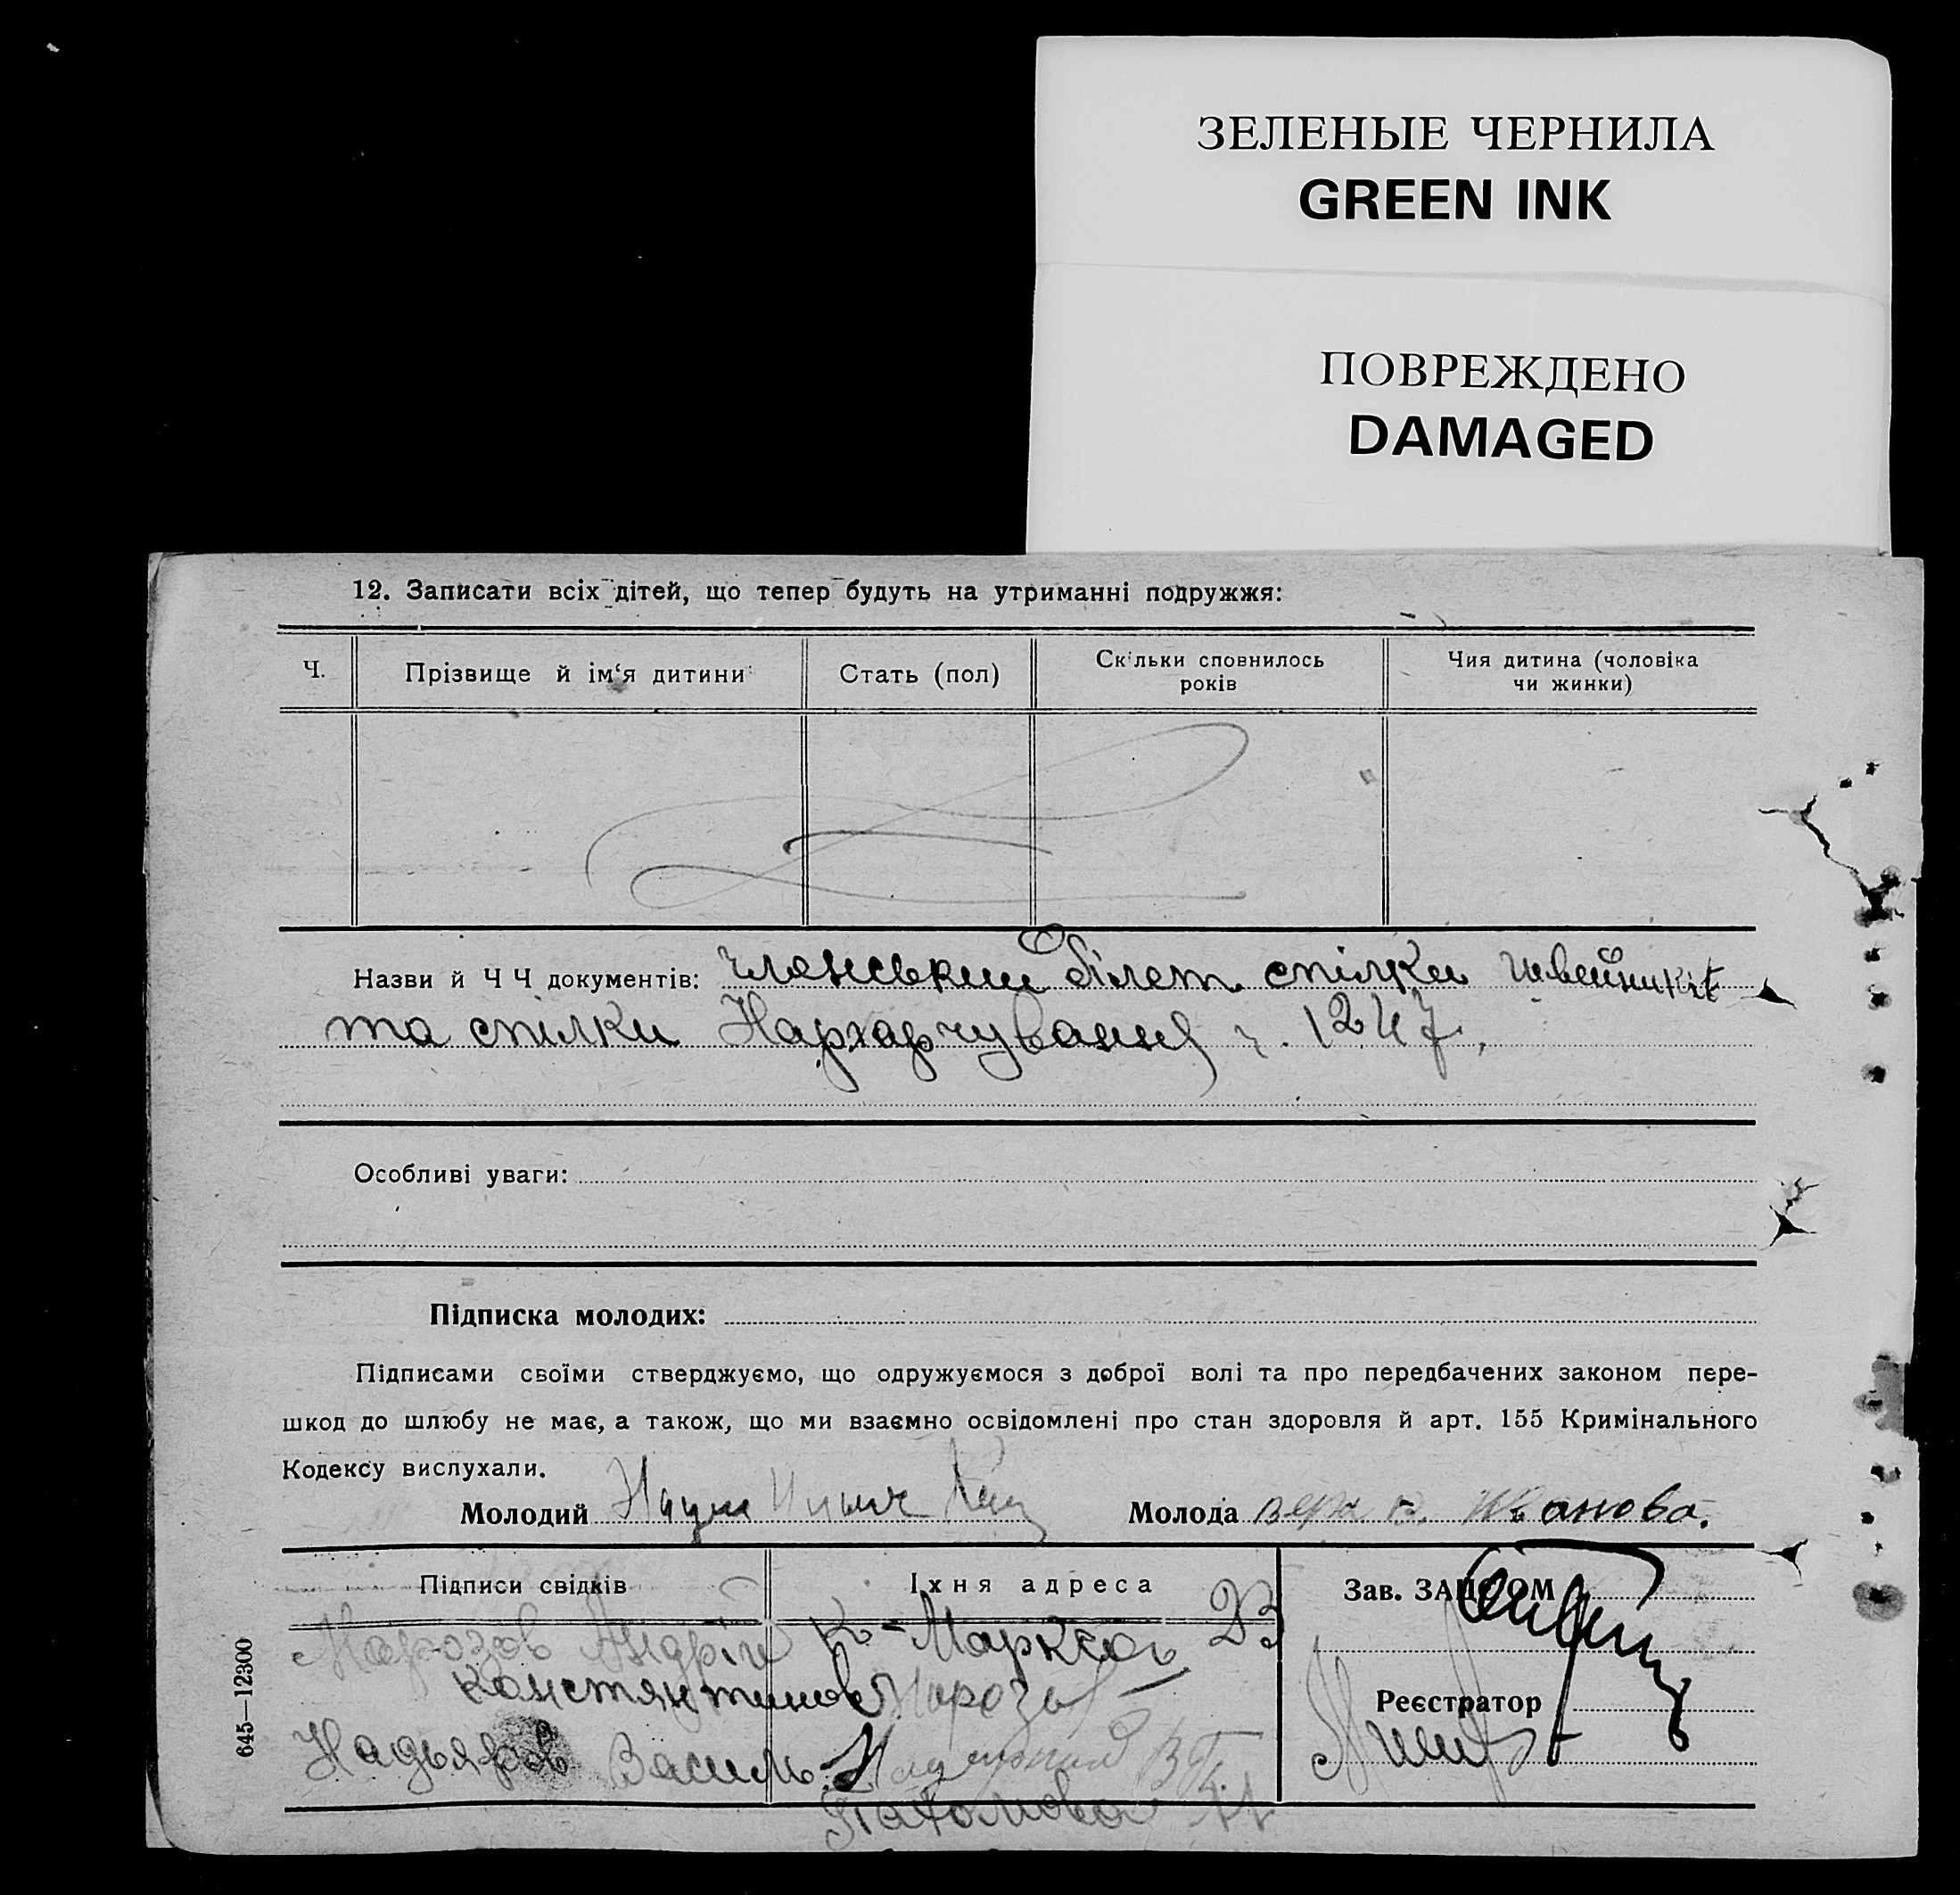 ЗЕЛЕНЫЕ ЧЕРНИЛА
GREEN INK
ПОВРЕЖДЕНО
DAMAGED
12. Записати всіх дітей, що тепер будуть на утриманні подружжя:
Ч.
Прізвище й ім‘я дитини
Стать (пол)
Скільки сповнилось
років
Чия дитина (чоловіка
чи жинки)
Назви й Ч Ч документів: членський білет спілки швейників
та спілки Нархарчування ч. 1247.
Особливі уваги:
Підписка молодих:
Підписами своїми стверджуємо, що одружуємося з доброї волі та про передбачених законом пере-
шкод до шлюбу не має, а також, що ми взаємно освідомлені про стан здоровля й арт. 155 Кримінального
Кодексу вислухали.
Молодий Наум
Молода Іванова.
Підписи свідків
Їхня адреса
Зав. ЗАЦСОМ
Морозов Андрій К-Маркса 23
Константинов Мороз
Реєстратор
Надьяров Василь
Пахомова
645—12300